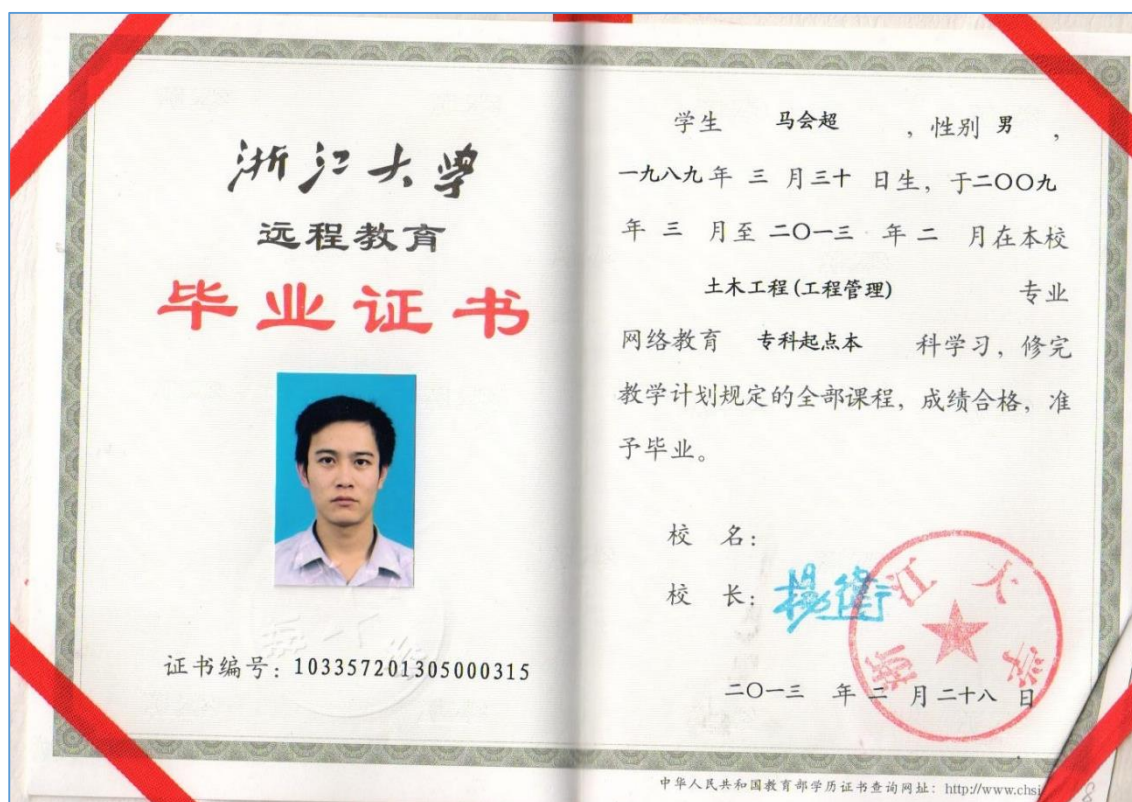 浙江大学
远程教育
毕业证书
证书编号：103357201305000315
学生 马会超 ，性别 男 ，
一九八九年 三 月三十 日生，于二〇〇九
年 三 月至 二〇一三 年 二 月在本校
土木工程(工程管理) 专业
网络教育 专科起点本 科学习，修完
教学计划规定的全部课程，成绩合格，准
予毕业。
校 名：
校 长：杨卫
浙江大学
二〇一三 年 二 月二十八 日
中华人民共和国教育部学历证书查询网址：http://www.chsi